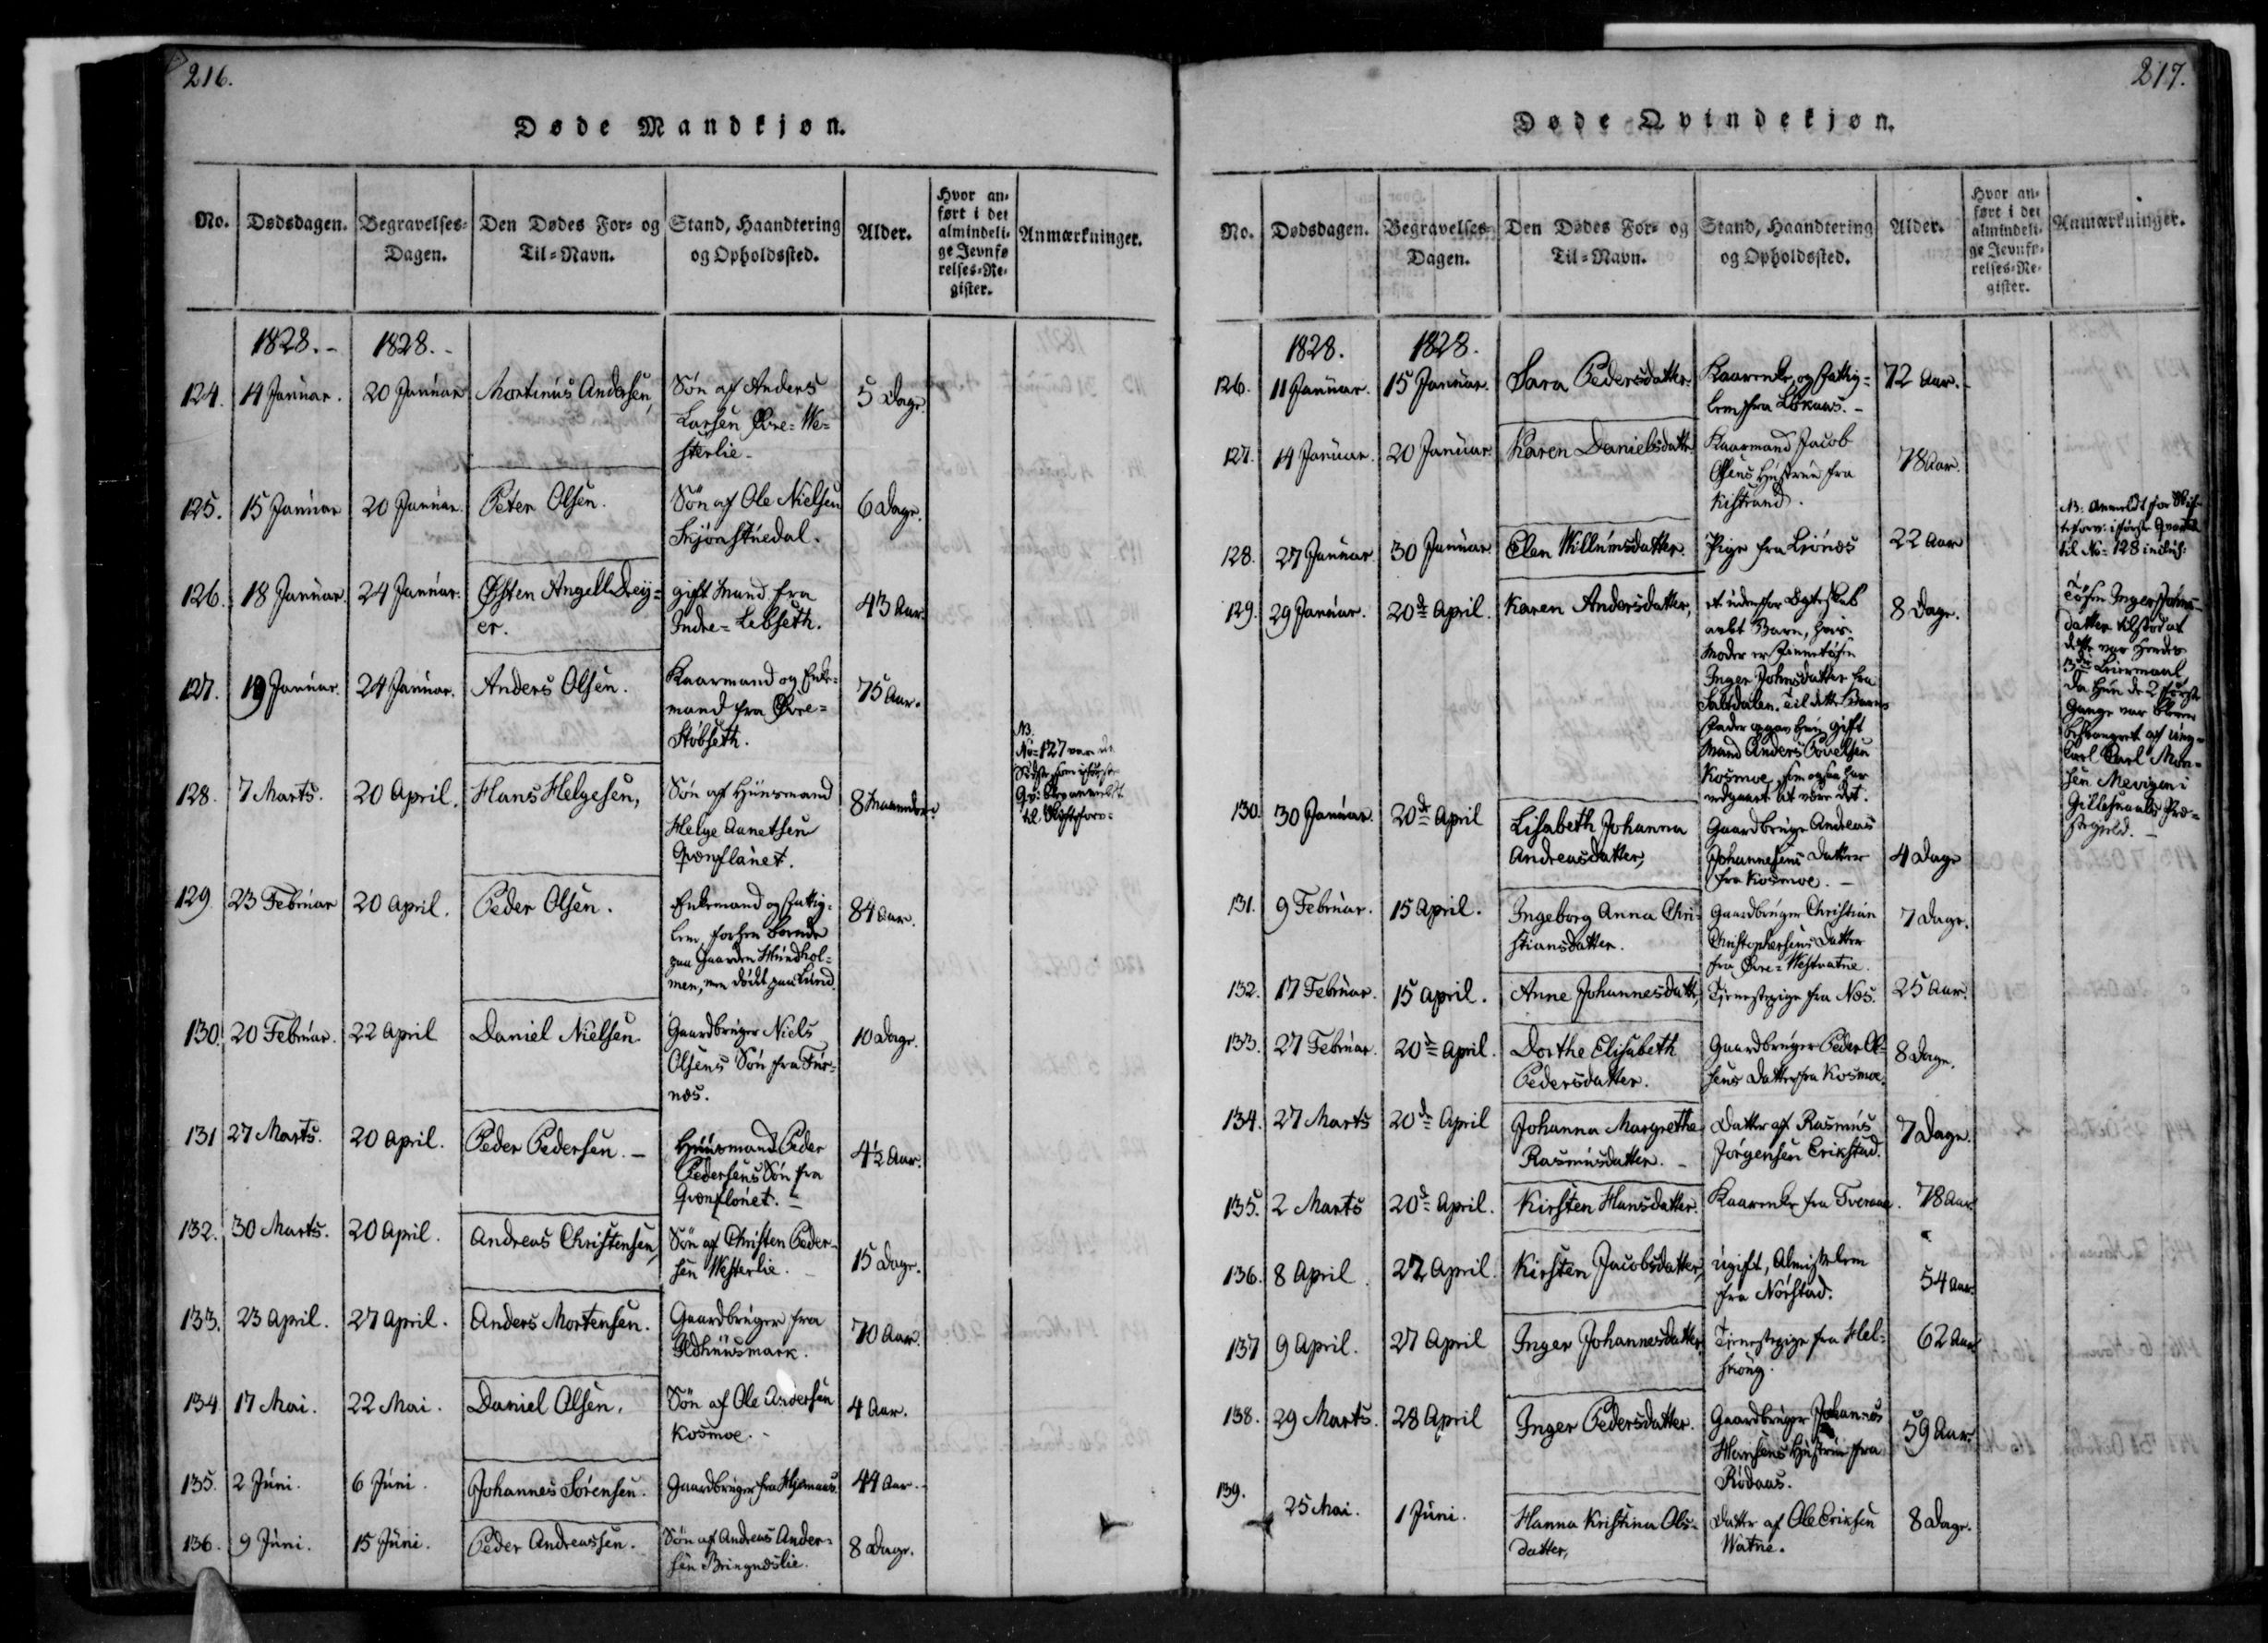 216.
Døde Mandkjøn.
No.
Dødsdagen.
Begravelses-
Dagen.
Den Dødes For- og
Til-Navn.
Stand, Haandtering
og Opholdssted.
Alder.
Hvor an-
ført i det
almindeli-
ge Jevnfø
relses-Re-
gister.
Anmærkninger.
1828.-
1828.-
124.
14 Januar.
20 Januar
Martinus Andersen,
Søn af Anders
Larsen Øvre-We-
sterlie-
5 Dage.
125.
15 Januar
20 Januar.
Peter Olsen.
Søn af Ole Nielsen
Skjönstuedal.
6 Dage.
126.
18 Januar.
24 Januar.
Østen Angell Drey-
er.
gift Mand fra
Indre-Lebseth.
43 Aar.
127.
19 Januar.
24 Januar.
Anders Olsen.
Kaarmand og Enke-
mand fra Øvre-
Stöbseth.
75 Aar.
NB.
No-127 var den
128.
7 Marts.
20 April.
Hans Helgesen,
Søn af Huusmand
Helge Aanetsen
Qvænflånet.
8 Maaneder.
129.
23 Februar
20 April.
Peder Olsen.
Enkemand og Fattig-
lem, forhen boende
paa Gaarden Mundhol-
men, men døde paa Lund.
84 Aar.
130.
20 Februar.
22 April
Daniel Nielsen
Gaardbruger Niels
Olsens Søn fra Fur-
næs.
10 Dage.
131
27 Marts.
20 April.
Peder Pedersen.-
Huusmand Peder
Pedersens Søn fra
Qvænflönet.-
4½ Aar.
132.
30 Marts.
20 April.
Andreas Christensen,
Søn af Christen Peder-
sen Westerlie.
15 Dage.
133.
23 April.
27 April.
Anders Mortensen.
Gaardbruger fra
Ildhuusmark.
70 Aar.
134
17 Mai.
22 Mai.
Daniel Olsen,
Søn af Ole Andersen
Kosmoe.-
4 Aar.
135.
2 Juni.
6 Juni.
Johannes Sörensen.
Gaardbruger fra Hjemaas.
44 Aar.
136.
9 Juni.
15 Juni.
Peder Andreassen.
Søn af Andreas Ander-
sen Bringneslie.
8 Dage.
217.
Døde Qvindekjøn.
No.
Dødsdagen.
Begravelses-
Dagen.
Den Dødes For- og
Til-Navn.
Stand, Haandtering
og Opholdssted.
Alder.
Hvor an-
ført i det
almindeli-
ge Jevnfø-
relses-Re-
gister.
Anmærkninger.
1828.
1828.
126.
11 Januar.
15 Januar.
Sara Pedersdatter.
Kaarenke og Fattig-
lem fra Løkaas.-
72 Aar.
127.
14 Januar.
20 Januar.
Karen Danielsdatter
Kaarmand Jacob
Olsens Hustrue fra
Kistrand.
78 Aar.
128.
27 Januar
30 Januar
Elen Willumsdatter.
Pige fra Leönæs
22 Aar
NB: Anmeldt for Skif-
teforv: i første Qvartal
til No-128 inclus:
129.
29 Januar.
20de April.
Karen Andersdatter,
et udenfor Ægteskab
avlet Barn, hvis
Moder er Pinnetøsen
Inger Johnsdatter fra
Saltdalen. Til dette Barns
Fader opgav hun gift
Mand Anders Povelsen
Kosmoe, som ogsaa har
vedgaaet at være det.
8 Dage.
Tøsen Inger Johns-
datter tilstod at
dette var hendes
3die Leiermaal
da hun de 2 første
Gange var bleven
besvangret af Ung-
karl Carl Mon-
sen Mevigen i
Gilleskaals Præ-
stegield.-
130.
30 Januar.
20de April
Lisabeth Johanna
Andreasdatter,
Gaardbruger Andreas
Johannesens Datter
fra Kosmoe.-
4 Dage
131.
9 Februar.
15 April.
Ingeborg Anna Chri-
stiansdatter.
Gaardbruger Christian
Christophersens Datter
fra Øvre-Westvatne.
7 Dage.
132.
17 Februar.
15 April.
Anne Johannesdatt.
Tjenestepige fra Næs.
25 Aar.
133.
27 Februar.
20de April.
Dorthe Elisabeth
Pedersdatter.
Gaardbruger Peder Ol-
sens Datter fra Kosmoe.
8 Dage.
134.
27 Marts
20de April
Johanna Margrethe
Rasmusdatter.-
Datter af Rasmus
Jörgensen Erikstad.
7 Dage.
135.
2 Marts
20de April.
Kirsten Hansdatter.
Kaarenke fra Tveraae.
78 Aar
136.
8 April
27 April.
Kirsten Jacobsdatter,
ugift, Almisselem
fra Nörstad.
54 Aar.
137
9 April.
27 April
Inger Johannesdatter,
Tjenestepige fra Hel-
skoug.
62 Aar
138.
29 Marts.
28 April
Inger Pedersdatter.
Gaardbruger Johannes
Hansens Hustrue fra
Rödaas.
59 Aar
139.
25 Mai.
1 Juni.
Hanna Kristina Ols-
datter,
Datter af Ole Eriksen
Watne.
8 Dage.